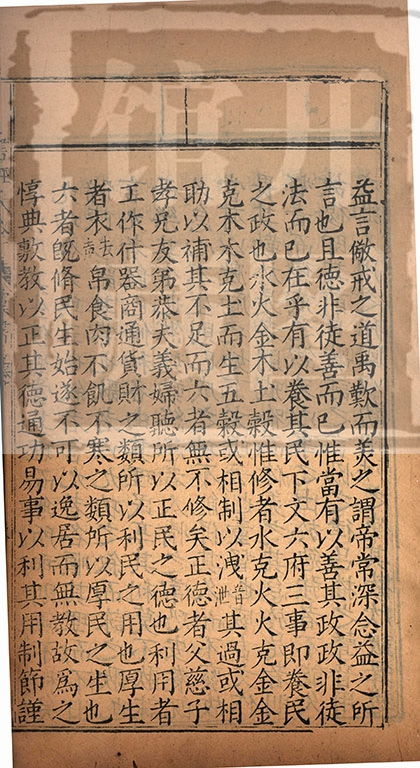 益言儆戒之道禹歎而美之謂帝常深念益之所
言也且德非徒善而已惟當有以善其政政非徒
法而已在乎有以養其民下文六府三事即養民
之政也水火金木土榖惟修者水克火火克金金
克木木克土而生五榖或相制以洩音泄其過或相
助以補其不足而六者無不修矣正德者父慈子
孝兄友弟恭夫義婦聽所以正民之德也利用者
工作什器商通貨財之類所以利民之用也厚生
者衣去吉帛食肉不飢不寒之類所以厚民之生也
六者旣脩民生始遂不可以逸居而無教故爲之
惇典敷教以正其德通功易事以利其用制節謹